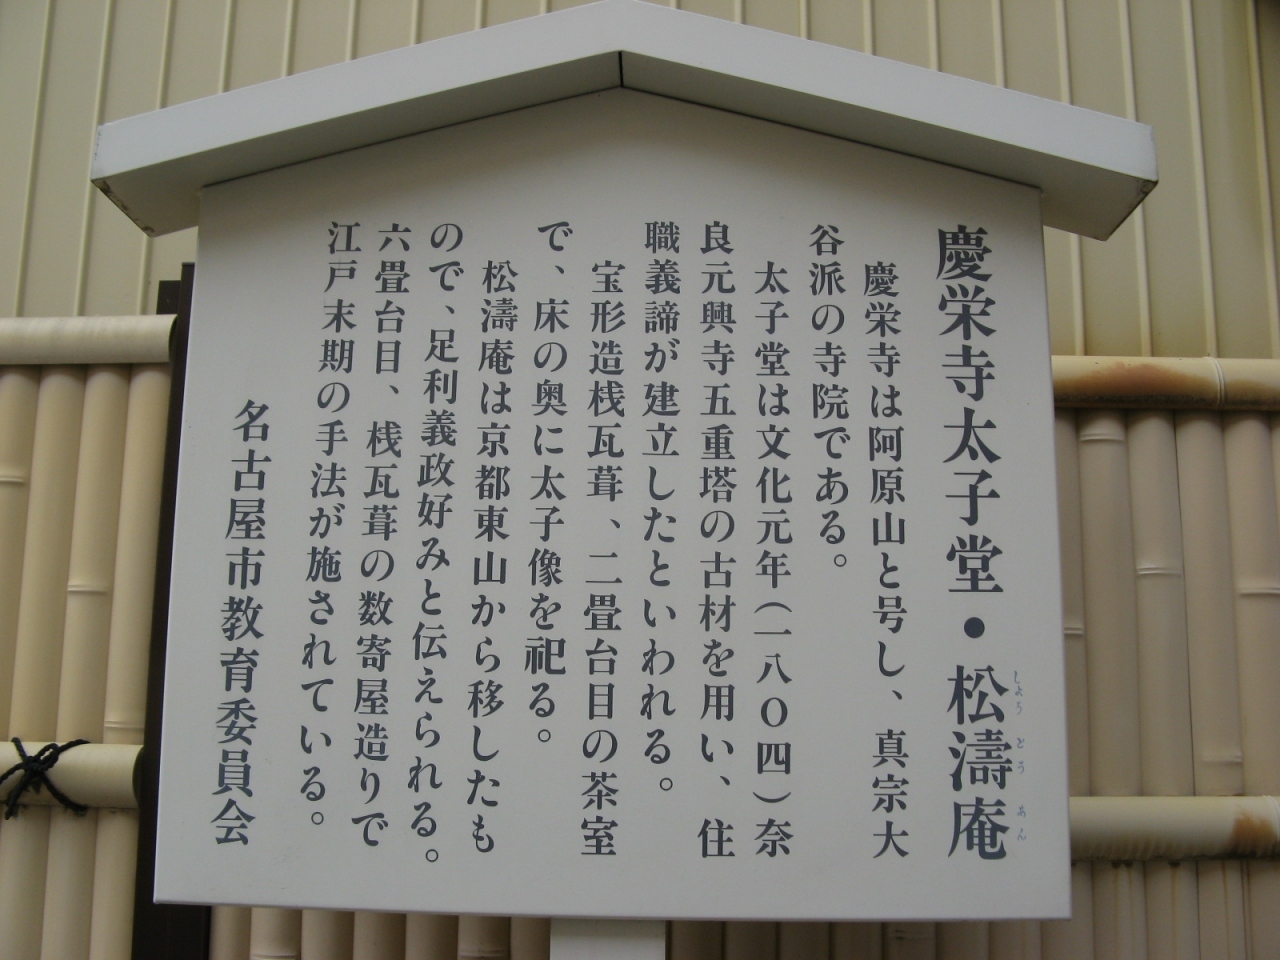 慶栄寺太子堂・松濤庵
しょうとうあん
慶栄寺は阿原山と号し、真宗大
谷派の寺院である。
太子堂は文化元年(一八〇四)奈
良元興寺五重塔の古材を用い、住
職義諦が建立したといわれる。
宝形造桟瓦葺、二畳台目の茶室
で、床の奥に太子像を祀る。
松濤庵は京都東山から移したも
ので、足利義政好みと伝えられる。
六畳台目、桟瓦葺の数寄屋造りで
江戸末期の手法が施されている。
名古屋市教育委員会